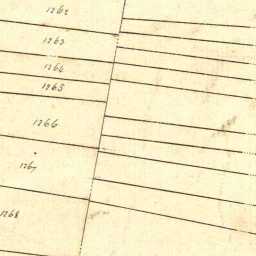 1262
1263
1264
1265
1266
1267
1268